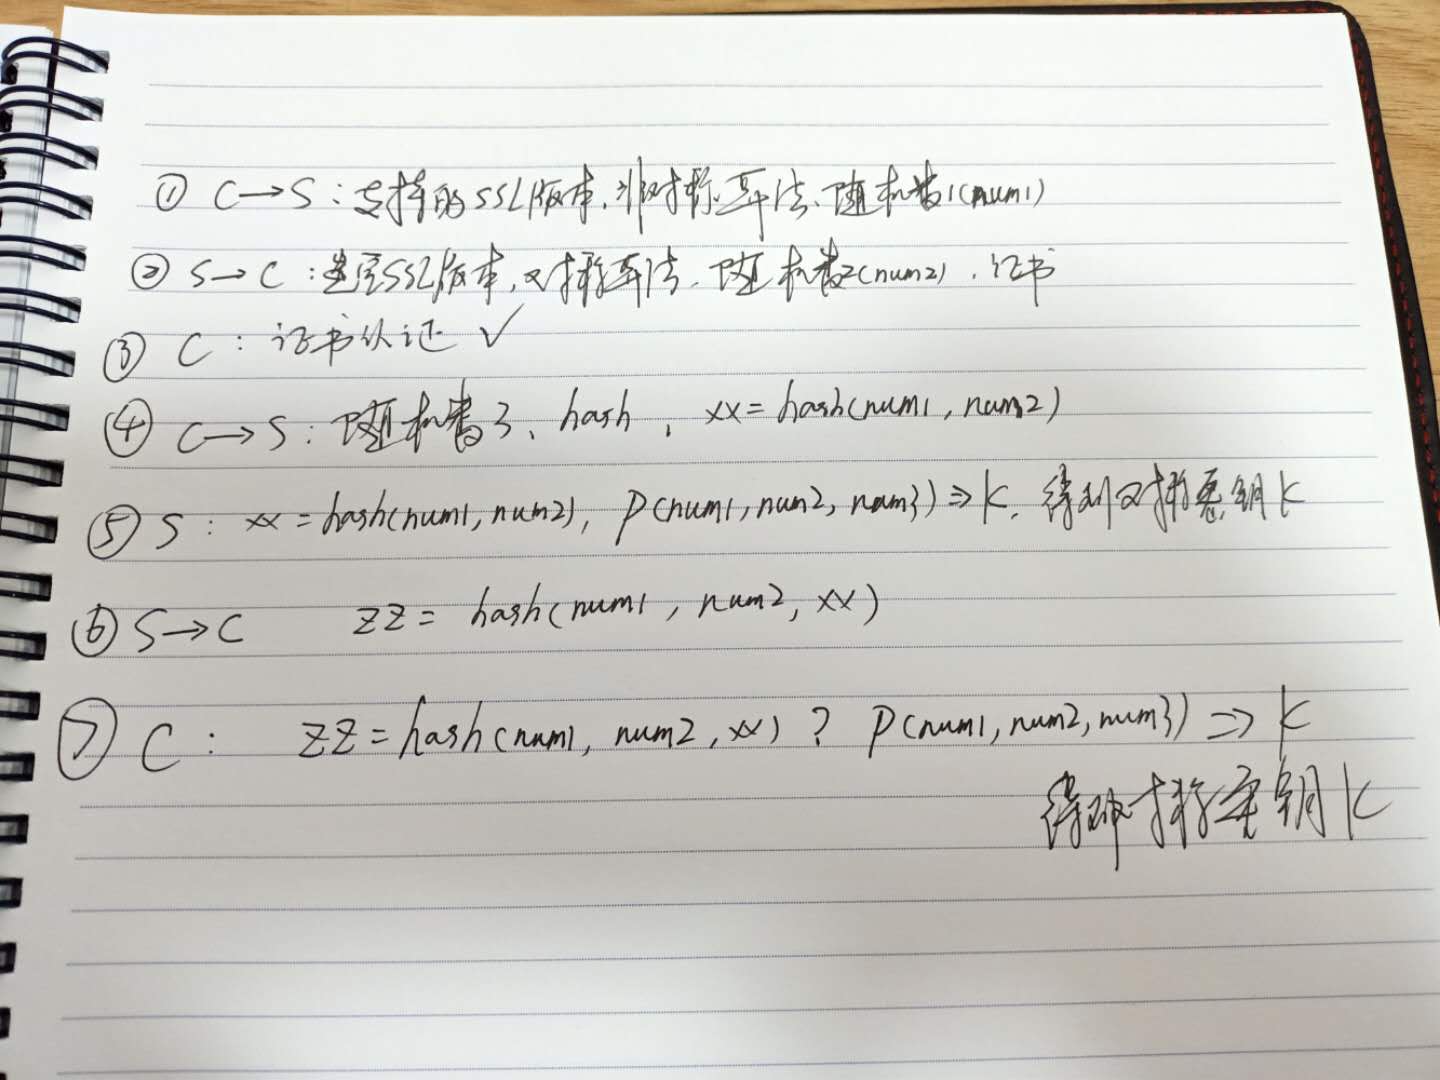 ① C→S：支持的SSL版本、非对称算法、随机数1(num1)
② S→C：选定SSL版本，对称算法、随机数2(num2)、证书
③ C：证书认证 ✓
④ C→S：随机数3、hash，xx=hash(num1, num2)
⑤ S：xx=hash(num1, num2)，P(num1, num2, num3)⇒K，得到对称密钥K
⑥ S→C zz= hash(num1, num2, xx)
⑦ C： zz=hash(num1, num2, xx)? P(num1, num2, num3) ⇒ K
得到对称密钥K